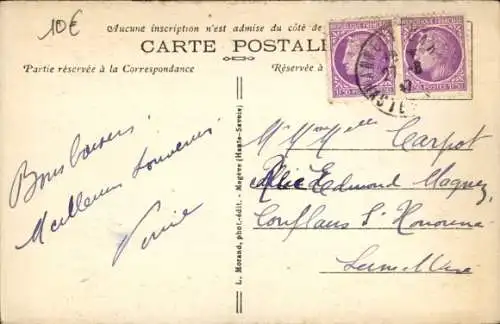 10€
Aucune inscription n'est admise du côté de
CARTE POSTALE
Partie réservée à la Correspondance
Réservée à
Bons baisers
Meilleurs Souvenirs
L. Morand, phot.-édit. - Megève (Haute-Savoie)
Carpot
Edmond Magnez
Conflans Ste Honorine
Seine et Oise